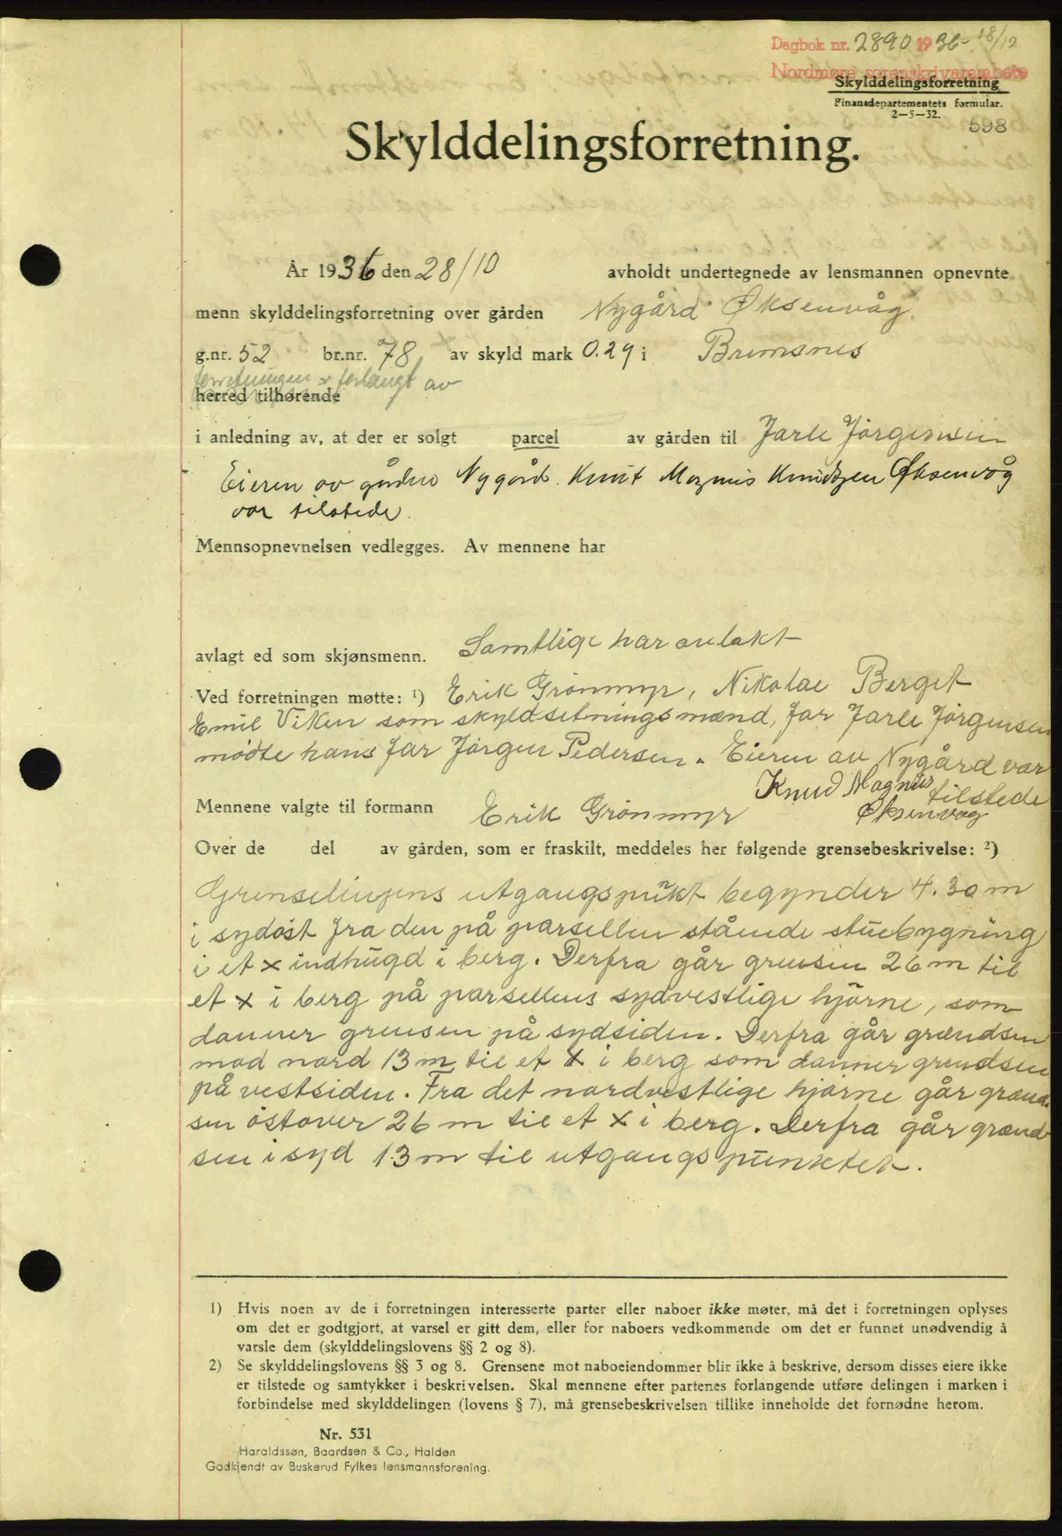 Dagbok nr. 2890 1936 - 18/12
Nordmøre sorenskriverembete
Skylddelingsforretning
Finansdepartementets formular.
2—5—32.
598
Skylddelingsforretning.
År 1936 den 28/10 avholdt undertegnede av lensmannen opnevnte
menn skylddelingsforretning over gården Nygård Øksenvåg
g.nr. 52 br.nr. 78 av skyld mark 0.29 i Bremsnes
forretningen er forlangt av
herred tilhørende
i anledning av, at der er solgt parcel av gården til Jarle Jørgensen
Eieren av gården Nygård Knut Magnus Knudtzen Øksenvåg
var tilstede.
Mennsopnevnelsen vedlegges. Av mennene har
avlagt ed som skjønsmenn. Samtlige har avlakt
Ved forretningen møtte: ¹) Erik Grønmyr, Nikolae Berget
Emil Viken som skyldsetningsmænd, for Jarle Jørgensen
mødte hans far Jørgen Pedersen. Eieren av Nygård var
Knud Magnus tilstede
Øksenvåg
Mennene valgte til formann Erik Grønmyr
Over de del av gården, som er fraskilt, meddeles her følgende grensebeskrivelse: ²)
Grenselinjens utgangspunkt begynder 4.30 m
i sydøst fra den på parsellen stående stuebygning
i et x indhugd i berg. Derfra går grensen 26 m til
et x i berg på parsellens sydvestlige hjørne, som
danner grensen på sydsiden. Derfra går grændsen
mod nord 13 m til et x i berg som danner grendsen
på vestsiden. Fra det nordvestlige hjørne går grænd-
sen østover 26 m til et x i berg. Derfra går grænd-
sen i syd 13 m til utgangspunktet.
1) Hvis noen av de i forretningen interesserte parter eller naboer ikke møter, må det i forretningen oplyses
om det er godtgjort, at varsel er gitt dem, eller for naboers vedkommende om det er funnet unødvendig å
varsle dem (skylddelingslovens §§ 2 og 8).
2) Se skylddelingslovens §§ 3 og 8. Grensene mot naboeiendommer blir ikke å beskrive, dersom disses eiere ikke
er tilstede og samtykker i beskrivelsen. Skal mennene efter partenes forlangende utføre delingen i marken i
forbindelse med skylddelingen (lovens § 7), må grensebeskrivelsen tillike inneholde det fornødne herom.
Nr. 531
Haraldssøn, Baardsen & Co., Halden
Godkjendt av Buskerud Fylkes lensmannsforening.